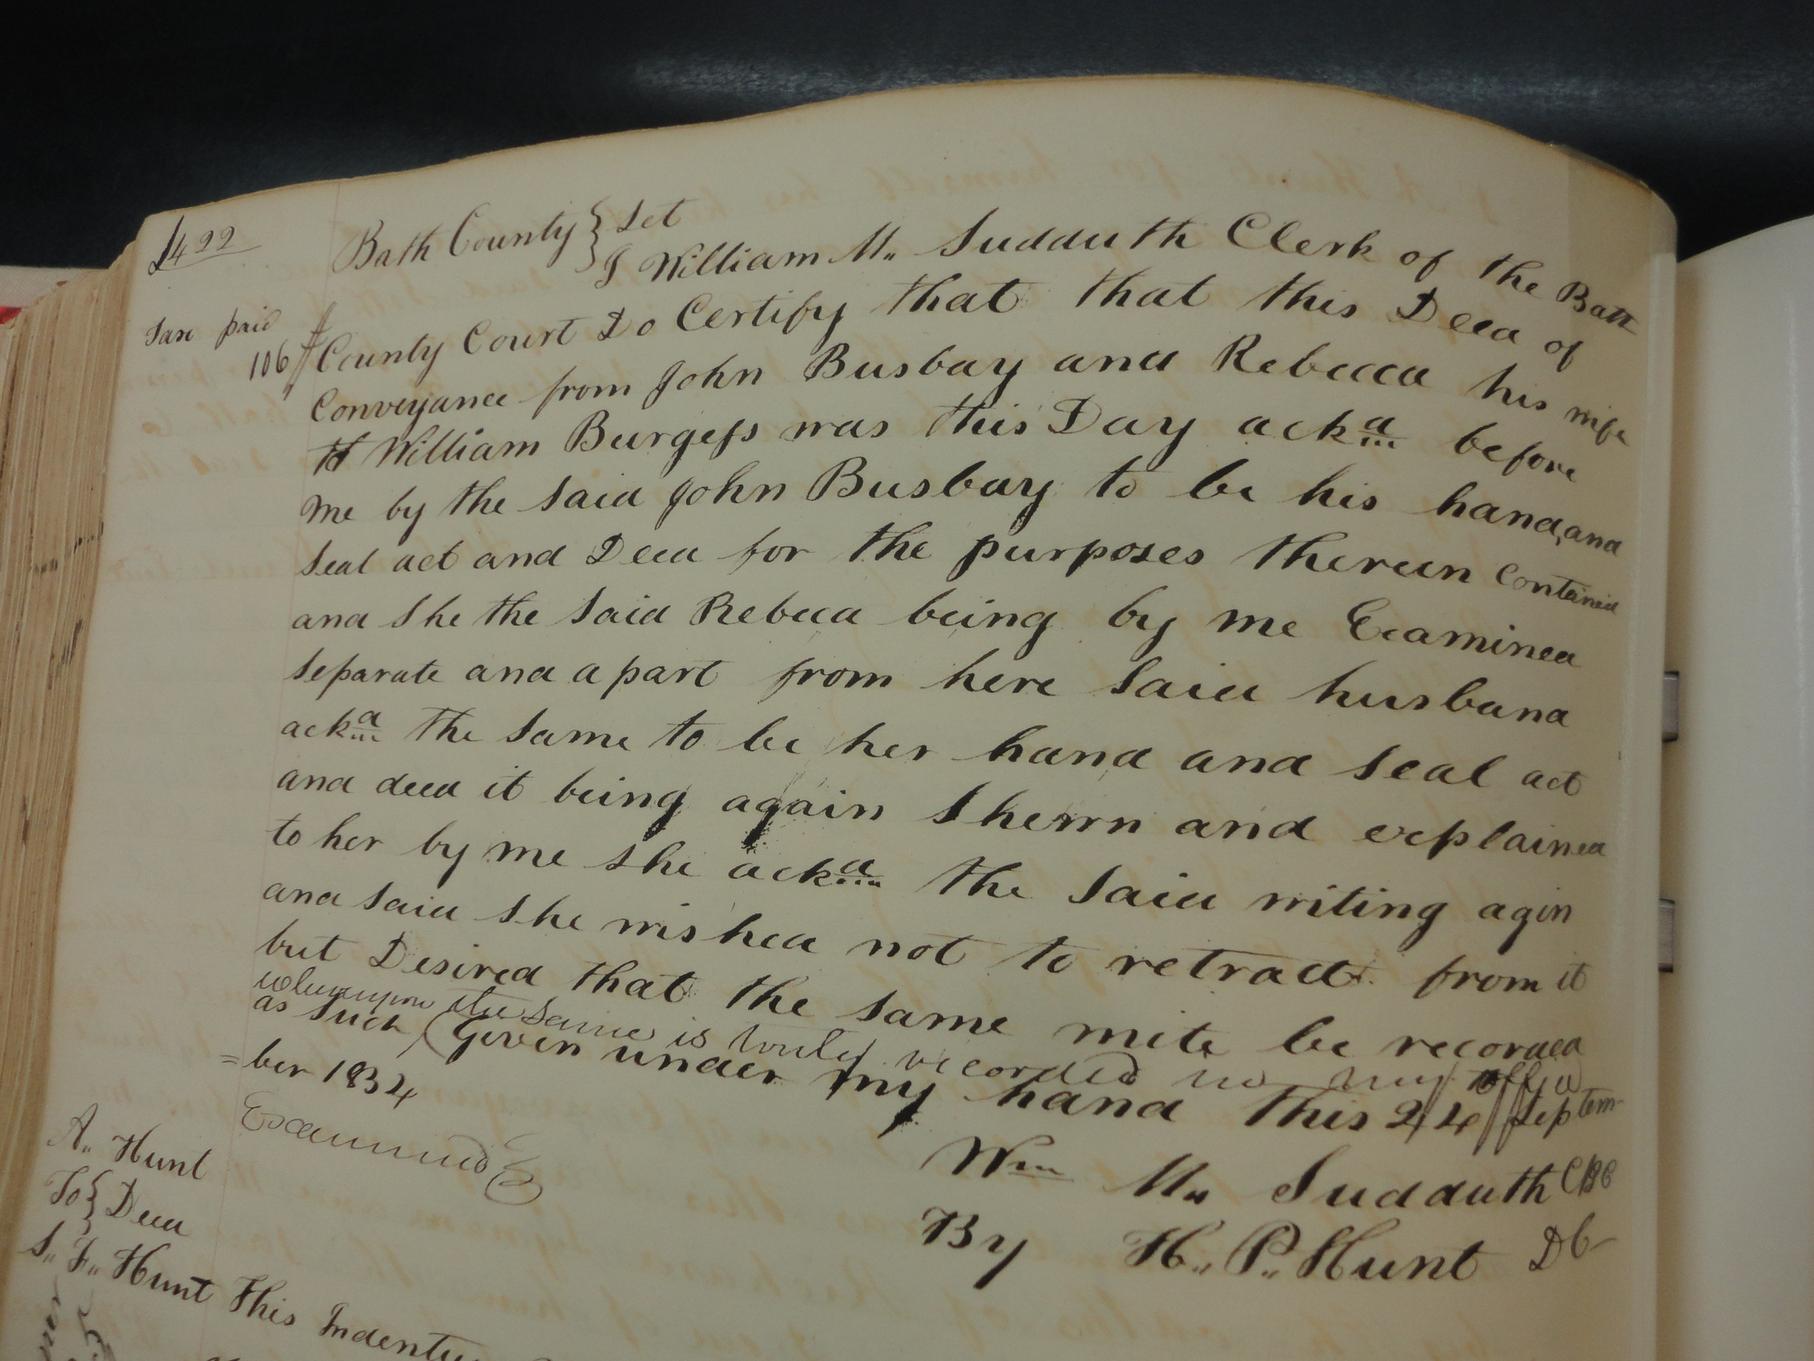 422
Bath County } Sct
I William M. Sudduth Clerk of the Bath
Tax paid
106
County Court Do Certify that that this Deed of
Conveyance from John Busbay and Rebecca his wife
to William Burgess was this Day ackd before
me by the Said John Busbay to be his hand, and
Seal act and Deed for the purposes therein Contained
and She the Said Rebeca being by me Examined
separate and apart from here Said husband
ackd the same to be her hand and Seal act
and deed it being again Shewn and explained
to her by me she ackd the Said writing agin
and said She wished not to retract from it
but Desired that the same mite be recorded
whereupon the same is truly recorded in my office
as Such Given under my hand this 24 Septem-
=ber 1834
Examined
Wm M. Sudduth CBC
By H. P. Hunt DC
A. Hunt
To } Deed
S. F. Hunt This Indentu